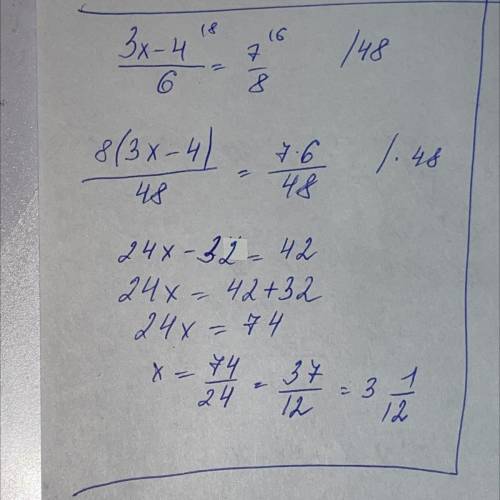 (3x-4)/6 (8 = 7/8 (6 /48
8(3x-4)/48 = 7·6/48 /·48
24x-32 = 42
24x = 42+32
24x = 74
x = 74/24 = 37/12 = 3 1/12